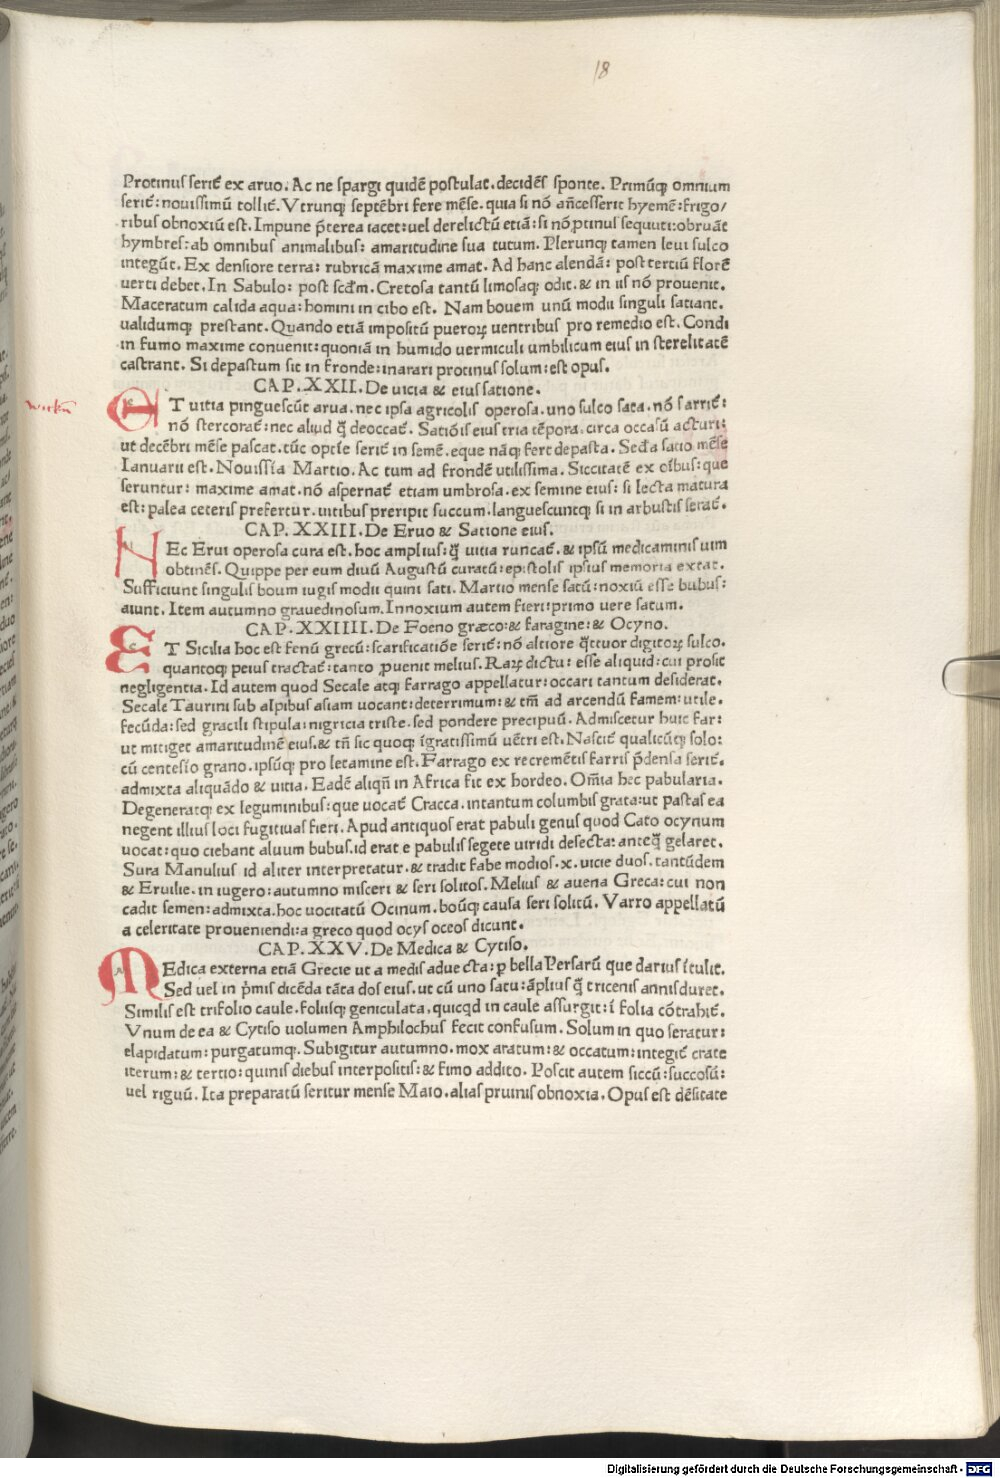 18
Protinus serit᷑ ex aruo. Ac ne spargi quidē postulat. decidēs sponte. Primūq; omnium
serit᷑: nouissimū tollit᷑. Vtrunq; septēbri fere mēse. quia si nō añcesserit hyemē: frigo/
ribus obnoxiū est. Impune p̄terea iacet: uel derelictū etiā: si nō ꝓtinus sequuti: obruāt
hymbres: ab omnibus animalibus: amaritudine sua tutum. Plerunq; tamen leui sulco
integūt. Ex densiore terra: rubricā maxime amat. Ad hanc alendā: post tertiū florē
uerti debet. In Sabulo: post scd̄m. Cretosa tantū limosaq; odit. & in iis nō prouenit.
Maceratum calida aqua: homini in cibo est. Nam bouem unū modii singuli satiant.
ualidumq; prestant. Quando etiā impositū pueroꝝ uentribus pro remedio est. Condi
in fumo maxime conuenit: quoniā in humido uermiculi umbilicum eius in sterelitatē
castrant. Si depastum sit in fronde: inarari protinus solum: est opus.
CAP. XXII. De uicia & eius satione.
wickn
ET uitia pinguescūt arua. nec ipsa agricolis operosa. uno sulco sata. nō sarrit᷑:
nō stercorat᷑: nec aliud q̄ deoccat᷑. Satiōis eius tria tēpora. circa occasū acturi:
ut decēbri mēse pascat. tūc optīe serit᷑ in semē. eque nāq; fert depasta. Secda satio mēse
Ianuarii est. Nouissīa Martio. Ac tum ad frondē utilissima. Siccitatē ex oībus: que
seruntur: maxime amat. nō aspernat᷑ etiam umbrosa. ex semine eius: si lecta matura
est: palea ceteris prefertur. uitibus preripit succum. languescuntq; si in arbustis serat᷑.
CAP. XXIII. De Eruo & Satione eius.
NEc Erui operosa cura est. hoc amplius: q̄ uitia runcat᷑. & ipsū medicaminis uim
obtinēs. Quippe per eum diuū Augustū curatū: epistolis ipsius memoria extat.
Sufficiunt singulis boum iugis modii quini sati. Martio mense satū: noxiū esse bubus:
aiunt. Item autumno grauedinosum. Innoxium autem fieri: primo uere satum.
CAP. XXIIII. De Foeno græco: & faragine: & Ocyno.
ET Sicilia hoc est fenū grecū: scarificatiōe serit᷑: nō altiore q̄ttuor digitoꝝ sulco.
quantoq; peius tractat᷑: tanto ꝓuenit melius. Raꝝ dictu: esse aliquid: cui prosit
negligentia. Id autem quod Secale atq; farrago appellatur: occari tantum desiderat.
Secale Taurini sub alpibus asiam uocant: deterrimum: & tm̄ ad arcendū famem: utile.
fecūda: sed gracili stipula: nigricia triste. sed pondere precipuū. Admiscetur huic far:
ut mitiget amaritudinē eius. & tn̄ sic quoq; īgratissimū uētri est. Nascit᷑ qualicūq; solo:
cū centesīo grano. ipsūq; pro letamine est. Farrago ex recremētis farris p̄densa serit᷑.
admixta aliquādo & uitia. Eadē aliqn̄ in Africa fit ex hordeo. Om̄ia hec pabularia.
Degeneratq; ex leguminibus: que uocat᷑ Cracca. intantum columbis grata: ut pastas ea
negent illius loci fugitiuas fieri. Apud antiquos erat pabuli genus quod Cato ocynum
uocat: quo ciebant aluum bubus. id erat e pabulis segete uiridi desecta: anteq̄ gelaret.
Sura Manulius id aliter interpretatur. & tradit fabe modios. x. uicie duos. tantūdem
& Eruilie. in iugero: autumno misceri & seri solitos. Melius & auena Greca: cui non
cadit semen: admixta. hoc uocitatū Ocinum. boūq; causa seri solitū. Varro appellatū
a celeritate proueniendi: a greco quod ocys oceos dicunt.
CAP. XXV. De Medica & Cytiso.
MEdica externa etiā Grecie ut a medis aduecta: ꝑ bella Persarū que darius ītulit.
Sed uel in p̄mis dicēda tāta dos eius. ut cū uno satu: āplius q̄ tricenis annis duret.
Similis est trifolio caule. foliisq; geniculata, quicqd in caule assurgit: ī folia cōtrahit᷑.
Vnum de ea & Cytiso uolumen Amphilochus fecit confusum. Solum in quo seratur:
elapidatum: purgatumq;. Subigitur autumno. mox aratum: & occatum: integit᷑ crate
iterum: & tertio: quinis diebus interpositis: & fimo addito. Poscit autem siccū: succosū:
uel riguū. Ita preparatū seritur mense Maio. alias pruinis obnoxia. Opus est dēsitate
Digitalisierung gefördert durch die Deutsche Forschungsgemeinschaft - DFG